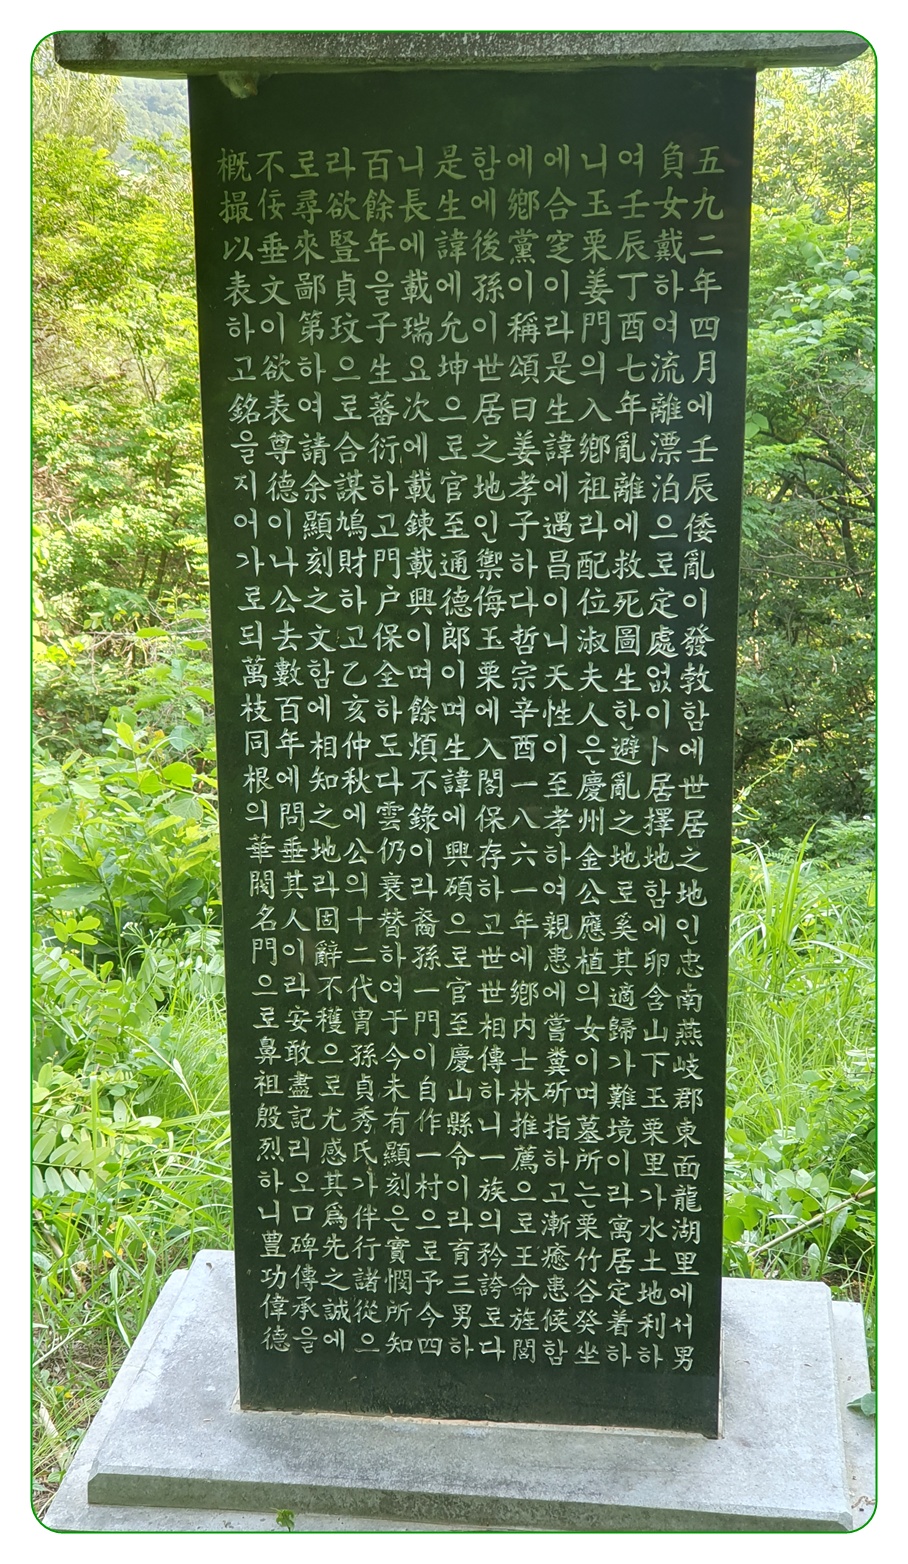 五九二年四月에壬辰倭亂이發敎함에世居之地인忠南燕岐郡東面龍湖里에서男
負女戴하여流離漂泊으로定處없이卜居擇地함에卵含山下玉栗里가水土地利하
여壬辰丁酉七年亂離에救死圖生한避亂之地로奚其適歸가難境이라寓居定着하
니玉栗姜門의入鄕祖라配位淑夫人은慶州金公應植의女이며墓所는栗竹谷癸坐
에合窆이라是生諱에遇昌이니天性이至孝하여親患에嘗糞斫指하고漸癒患候함
에鄕黨이稱頌曰姜孝子하다哲宗辛酉一八六一年에鄕內士林推薦으로王命旌閭
함에後孫이世居之地인禦侮玉栗에入閣保存하고世世相傳하니一族의矜誇로다
是生諱에允坤으로官至通德郎이며生諱에興碩으로官至慶山縣令이라育三男하
니長에載瑞요次에載鍊載興이며餘煩不錄이라裔孫一門이自作一村으로予今四
百餘年을子生蕃衍하고門户保全하도다雲仍衰替하여于今未有顯刻은實憫所知
라欲豎貞玟으로合謀鳩財하고乙亥仲秋에公의十二代胄孫貞秀氏가伴行諸從으
로尋來鄙第하여請余顯刻之文함에相知之地라固辭不獲으로尤感其爲先之誠에
不佞垂文이欲表尊德이나公去數百年에問垂其人이라安敢盡記리오口碑傳承을
槪撮以表하고銘을지어가로되萬枝同根의華閥名門으로鼻祖殷烈하니豊功偉德